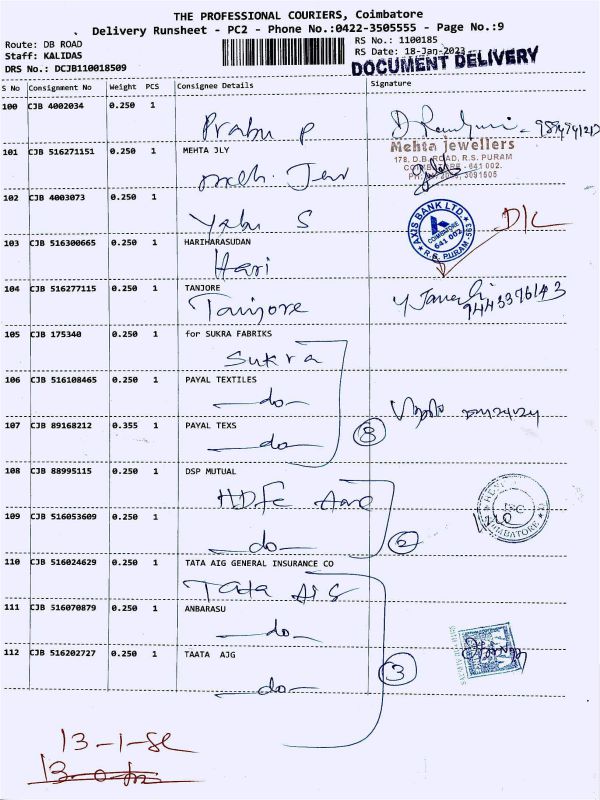 THE PROFESSIONAL COURIERS, Coimbatore
Delivery Runsheet - PC2 - Phone No.:0422-3505555 - Page No.:9
Route: DB ROAD
Staff: KALIDAS
DRS No.: DCJB110018509
RS No.: 1100185
RS Date: 18-Jan-2023
DOCUMENT DELIVERY
S No Consignment No Weight PCS Consignee Details Signature
100 CJB 4002034 0.250 1
Prabu P
101 CJB 516271151 0.250 1 MEHTA JLY
Mehta Jewellers
178, D.B. ROAD, R.S. PURAM
COIMBATORE - 641 002.
102 CJB 4003073 0.250 1
S
AXIS BANK LTD
COIMBATORE
641 002
R.S. PURAM
D/C
103 CJB 516300665 0.250 1 HARIHARASUDAN
Hari
104 CJB 516277115 0.250 1 TANJORE
Tanjore
9443396143
105 CJB 175340 0.250 1 for SUKRA FABRIKS
Sukra
106 CJB 516108465 0.250 1 PAYAL TEXTILES
-do-
107 CJB 89168212 0.355 1 PAYAL TEXS
-do-
8
108 CJB 88995115 0.250 1 DSP MUTUAL
HDFC
109 CJB 516053609 0.250 1
-do-
6
COIMBATORE
110 CJB 516024629 0.250 1 TATA AIG GENERAL INSURANCE CO
Tata AIG
111 CJB 516070879 0.250 1 ANBARASU
-do-
112 CJB 516202727 0.250 1 TAATA AJG
-do-
3
13-1-se